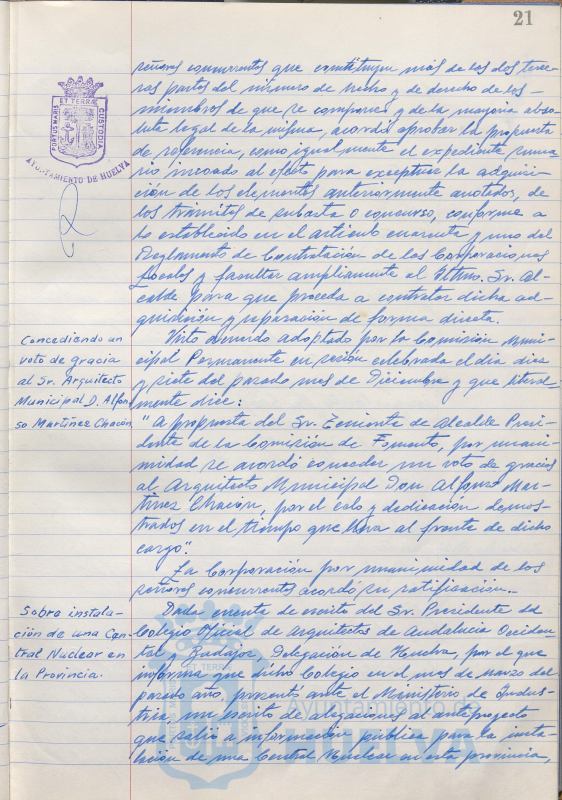 21
señores concurrentes que constituyen más de las dos terce-
ras partes del número de hecho y de derecho de los
miembros de que se compone y de la mayoría abso-
luta legal de la misma, acordó aprobar la propuesta
de referencia, como igualmente el expediente suma-
rio incoado al efecto para exceptuar la adquisi-
ción de los elementos anteriormente anotados, de
los trámites de subasta o concurso, conforme a
lo establecido en el artículo cuarenta y uno del
Reglamento de Contratación de las Corporaciones
Locales y facultar ampliamente al Iltmo. Sr. Al-
calde para que proceda a contratar dicha ad-
quisición y reparación de forma directa.
PORTUS MARIS
ET TERRA
CUSTODIA
AYUNTAMIENTO DE HUELVA
Concediendo un
voto de gracia
al Sr. Arquitecto
Municipal D. Alfon-
so Martínez Chacón.
Visto acuerdo adoptado por la Comisión Muni-
cipal Permanente en sesión celebrada el día diez
y siete del pasado mes de Diciembre y que literal-
mente dice:
"A propuesta del Sr. Teniente de Alcalde Presi-
dente de la Comisión de Fomento, por unani-
midad se acordó conceder un voto de gracias
al Arquitecto Municipal Don Alfonso Mar-
tínez Chacón, por el celo y dedicación demos-
trados en el tiempo que lleva al frente de dicho
cargo".
La Corporación por unanimidad de los
señores concurrentes acordó su ratificación.-
Sobre instala-
ción de una Cen-
tral Nuclear en
la Provincia.
Dada cuenta de escrito del Sr. Presidente del
Colegio Oficial de Arquitectos de Andalucía Occiden-
tal y Badajoz, Delegación de Huelva, por el que
informa que dicho Colegio en el mes de marzo del
pasado año, presentó ante el Ministerio de Indus-
tria, un escrito de alegaciones al anteproyecto
que salió a información pública para la insta-
lación de una Central Nuclear en esta provincia,
Ayuntamiento de
HUELVA